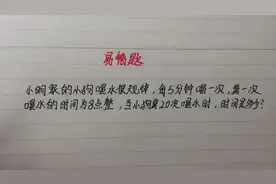 易错题
小明家的小狗喝水很规律，每5分钟喝一次，第一次
喝水的时间为8点整，当小狗第20次喝水时，时间是多少？